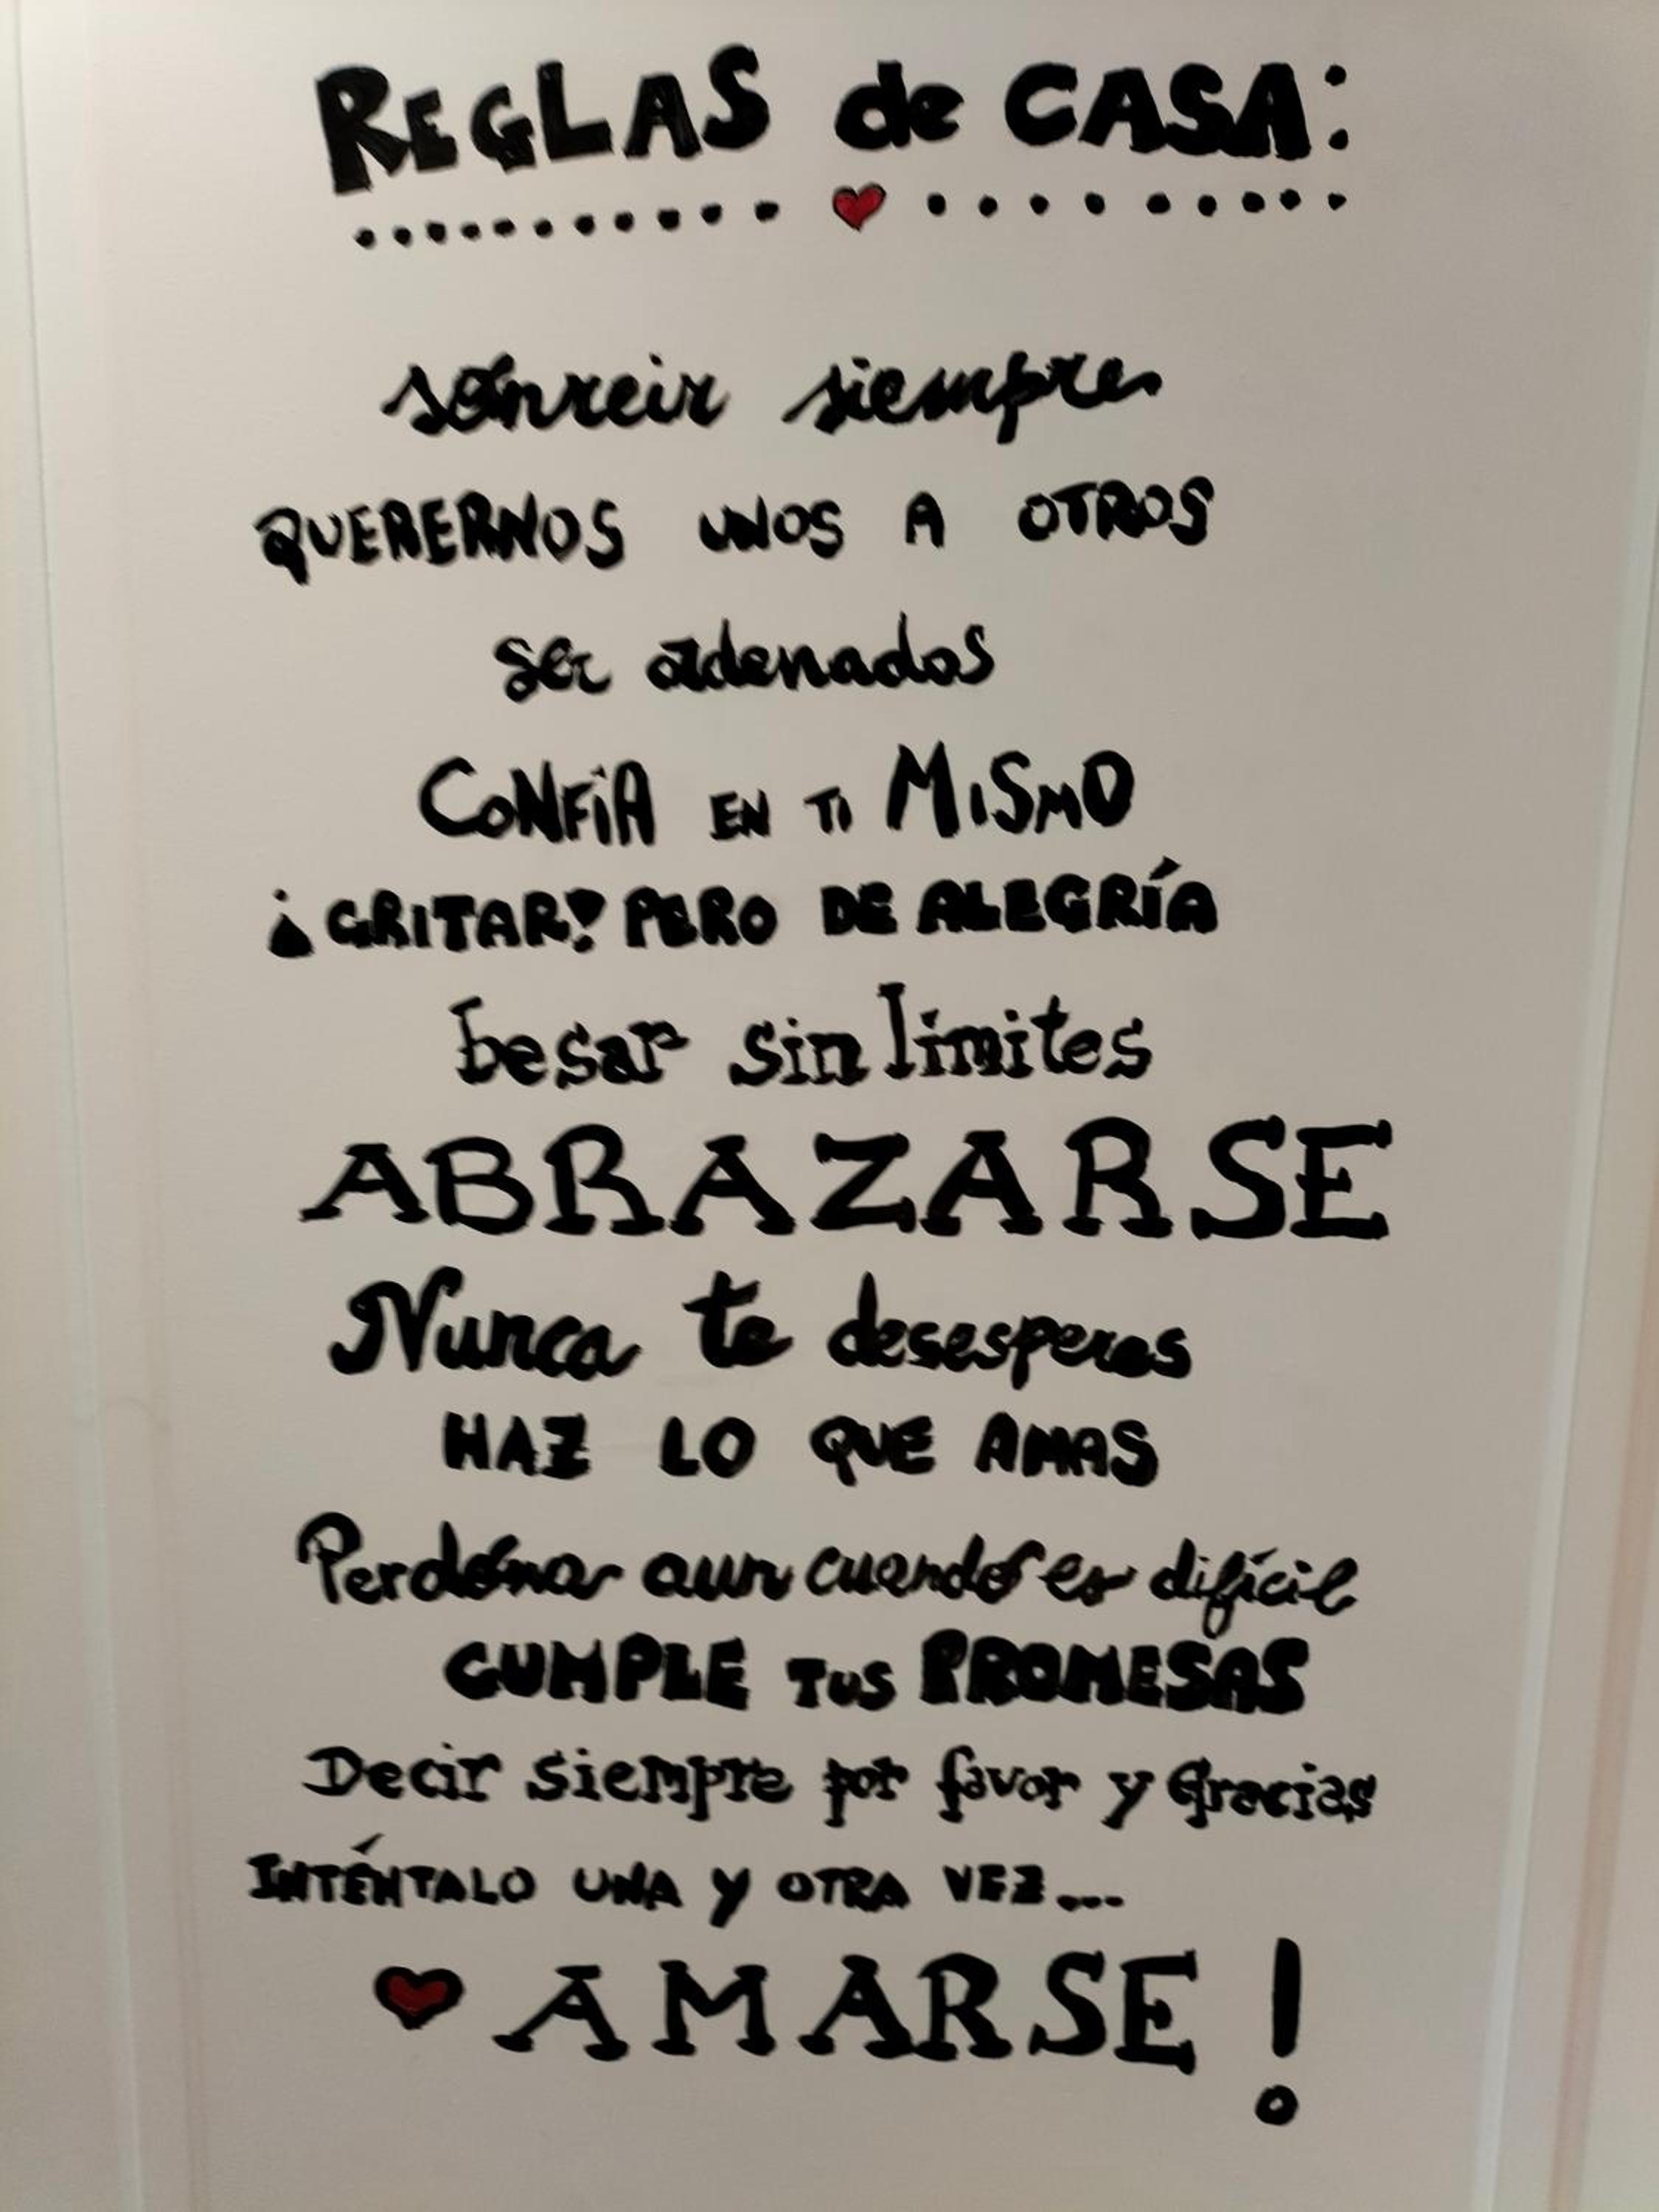 REGLAS de CASA:
sonreir siempre
QUERERNOS UNOS A OTROS
ser ordenados
CONFíA EN TI MISMO
¡GRITAR! PERO DE ALEGRÍA
besar sin límites
ABRAZARSE
Nunca te desesperes
HAZ LO QUE AMAS
Perdona aun cuando es difícil
CUMPLE TUS PROMESAS
Decir siempre por favor y Gracias
INTÉNTALO UNA Y OTRA VEZ...
♥ AMARSE!